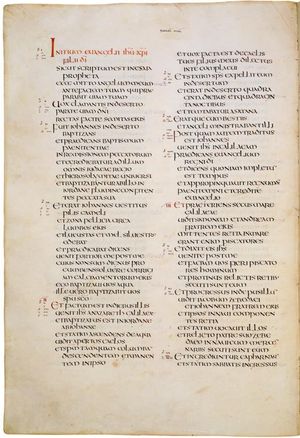 INITIUM EUANGELII IHU XPI
FILII DI
SICUT SCRIPTUM EST IN ESAIA
PROPHETA
ECCE MITTO ANGELUM MEUM
ANTE FACIEM TUAM QUI PRAE
PARABIT UIAM TUAM
UOX CLAMANTIS IN DESERTO
PARATE UIAM DNI
RECTAS FACITE SEMITAS EIUS
FUIT IOHANNES IN DESERTO
BAPTIZANS
ET PRAEDICANS BAPTISMUM
PAENITENTIAE
IN REMISSIONEM PECCATORUM
ET EGREDIEBATUR AD ILLUM
OMNIS IUDAEAE REGIO
ET HIEROSOLYMITAE UNIUERSI
ET BAPTIZABANTUR AB ILLO IN
IORDANE FLUMINE CONFITEN
TES PECCATA SUA
ET ERAT IOHANNES UESTITUS
PILIS CAMELI
ET ZONA PELLICIA CIRCA
LUMBOS EIUS
ET LUCUSTAS ET MEL SILUESTRE
EDEBAT
ET PRAEDICABAT DICENS
UENIT FORTIOR ME POST ME
CUIUS NON SUM DIGNUS PRO
CUMBENS SOLUERE CORRIGI
AM CALCIAMENTORUM EIUS
EGO BAPTIZAUI UOS AQUA
ILLE UERO BAPTIZABIT UOS
SPU SCO
ET FACTUM EST IN DIEBUS ILLIS
UENIT IHS A NAZARETH GALILEAE
ET BAPTIZATUS EST IN IORDANE
AB IOHANNE
ET STATIM ASCENDENS DE AQUA
UIDIT APERTOS CAELOS
ET SPM TAMQUAM COLUMBAM
DESCENDENTEM ET MANEN
TEM IN IPSO
ET UOX FACTA EST DE CAELIS
TU ES FILIUS MEUS DILECTUS
IN TE CONPLACUI
ET STATIM SPS EXPELLIT EUM IN
DESERTUM
ET ERAT IN DESERTO QUADRA
GINTA DIEBUS ET QUADRAGIN
TA NOCTIBUS
ET TEMTABATUR A SATANA
ERATQUE CUM BESTIIS
ET ANGELI MINISTRABANT ILLI
POSTQUAM AUTEM TRADITUS
EST IOHANNES
UENIT IHS IN GALILAEAM
PRAEDICANS EUANGELIUM
REGNI DI
ET DICENS QUONIAM IMPLETUM
EST TEMPUS
ET ADPROPINQUAUIT REGNUM DI
PAENITEMINI ET CREDITE
EUANGELIO
ET PRAETERIENS SECUS MARE
GALILAEAE
UIDIT SIMONEM ET ANDREAM
FRATREM EIUS
MITTENTES RETIA IN MARE
ERANT ENIM PISCATORES
ET DIXIT EIS IHS
UENITE POST ME
ET FACIAM UOS FIERI PISCATO
RES HOMINUM
ET PROTINUS RELICTIS RETIBUS
SECUTI SUNT EUM
ET PROGRESSUS INDE PUSILLUM
UIDIT IACOBUM ZEBEDAEI
ET IOHANNEM FRATREM EIUS
ET IPSOS IN NAUI CONPONEN
TES RETIA
ET STATIM UOCAUIT ILLOS
ET RELICTO PATRE SUO ZEBE
DAEO IN NAUI CUM MERCEN
NARIIS SECUTI SUNT EUM
ET INGREDIUNTUR CAPHARNAUM
ET STATIM SABBATIS INGRESSUS